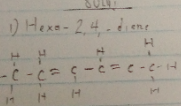 1) Hexa-2,4,-diene
H H H H
-C-C=C-C=C-C-H
H H H H